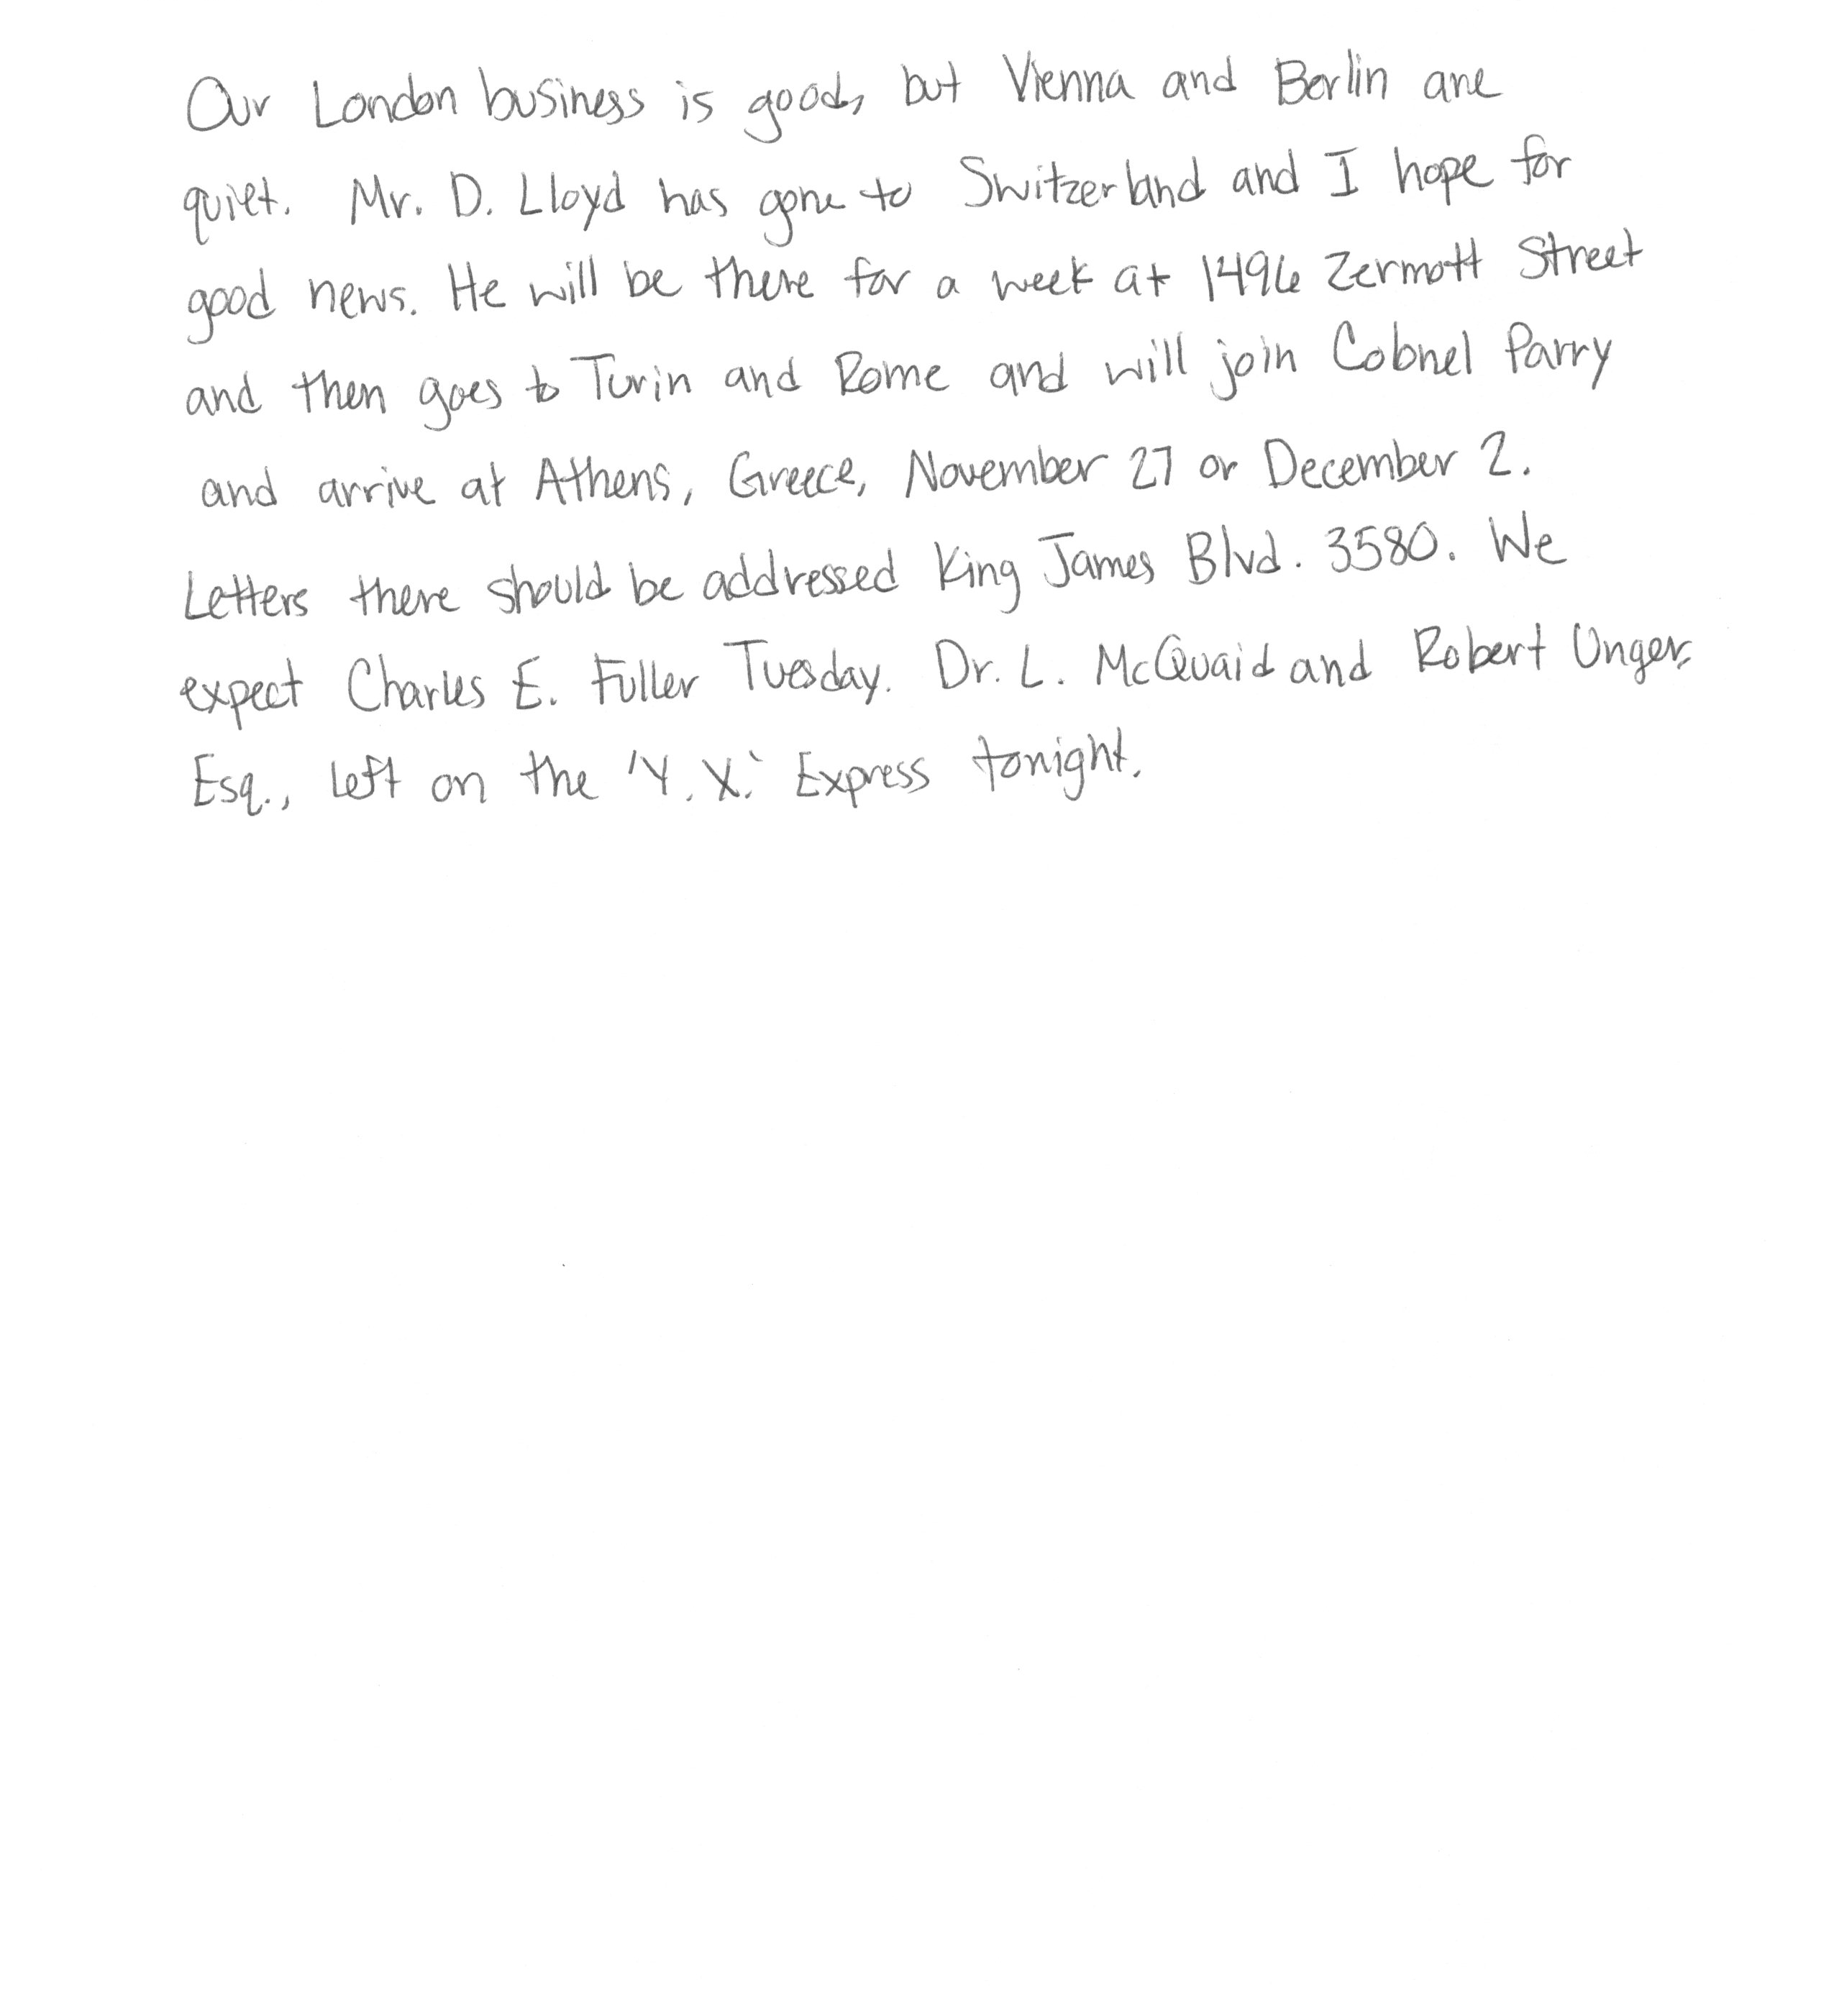 Our London business is good, but Vienna and Berlin are
quiet. Mr. D. Lloyd has gone to Switzerland and I hope for
good news. He will be there for a week at 1496 Zermott Street
and then goes to Turin and Rome and will join Colonel Parry
and arrive at Athens, Greece, November 27 or December 2.
Letters there should be addressed King James Blvd. 3580. We
expect Charles E. Fuller Tuesday. Dr. L. McQuaid and Robert Unger,
Esq., left on the 'Y.X.' Express tonight.